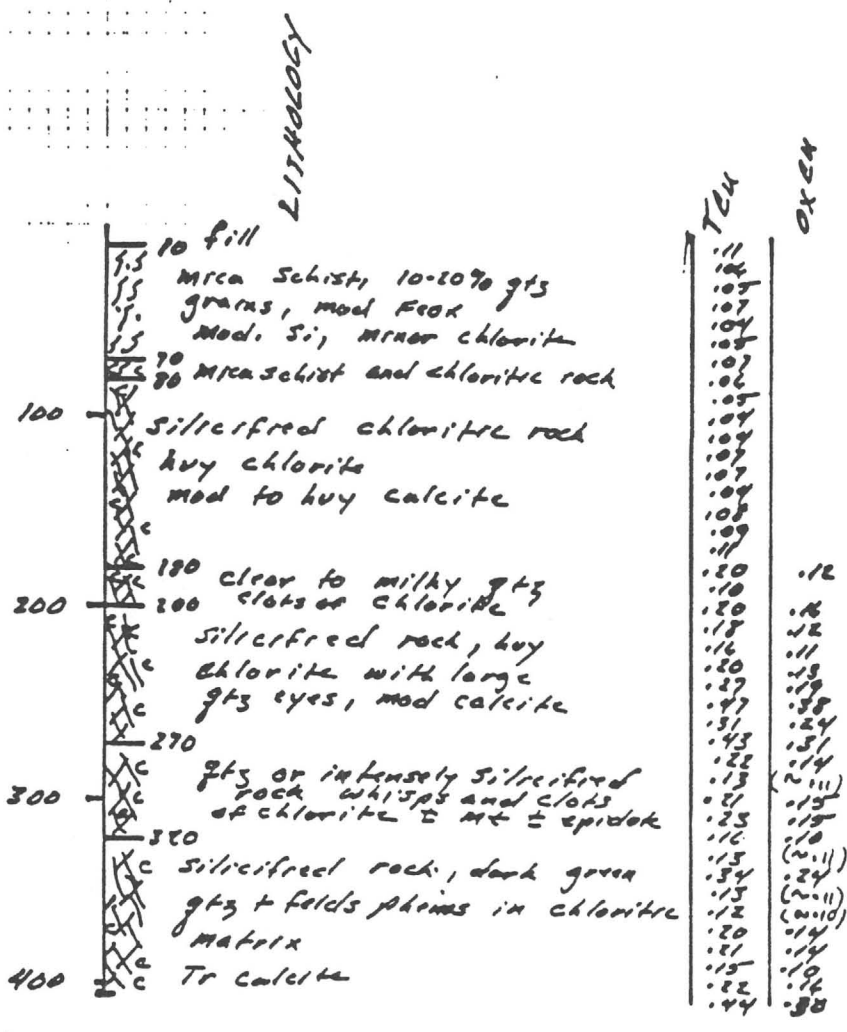 LITHOLOGY
TCu
OXCu
10 fill
mica schist, 10-20% qtz
grains, mod FeOx
mod. Si, minor chlorite
70
80 mica schist and chloritic rock
100
silicified chloritic rock
hvy chlorite
mod to hvy calcite
180 clear to milky qtz
clots of chlorite
200
200
silicified rock, hvy
chlorite with large
qtz eyes, mod calcite
270
qtz or intensely silicified
300
rock whisps and clots
of chlorite ± mt ± epidote
320
silicified rock, dark green
qtz + felds phenos in chloritic
matrix
400
Tr calcite
.11
.07
.04
.07
.04
.04
.07
.04
.08
.09
.11
.20 .12
.10
.20 .16
.18 .12
.16 .11
.20 .13
.27 .19
.47 .38
.31 .24
.43 .31
.22 .14
.13 (~.11)
.21 .15
.23 .15
.16 .10
.13 (~.11)
.34 .24
.13 (~.11)
.12 (~.10)
.20 .14
.21 .14
.15 .10
.22 .16
.44